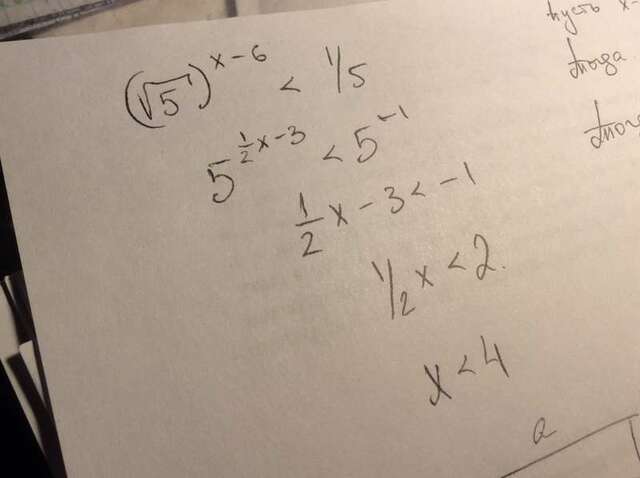 (√5)^(x-6) < 1/5
5^(1/2 x-3) < 5^-1
1/2 x - 3 < -1
1/2 x < 2.
x < 4
пусть x-
тогда
a